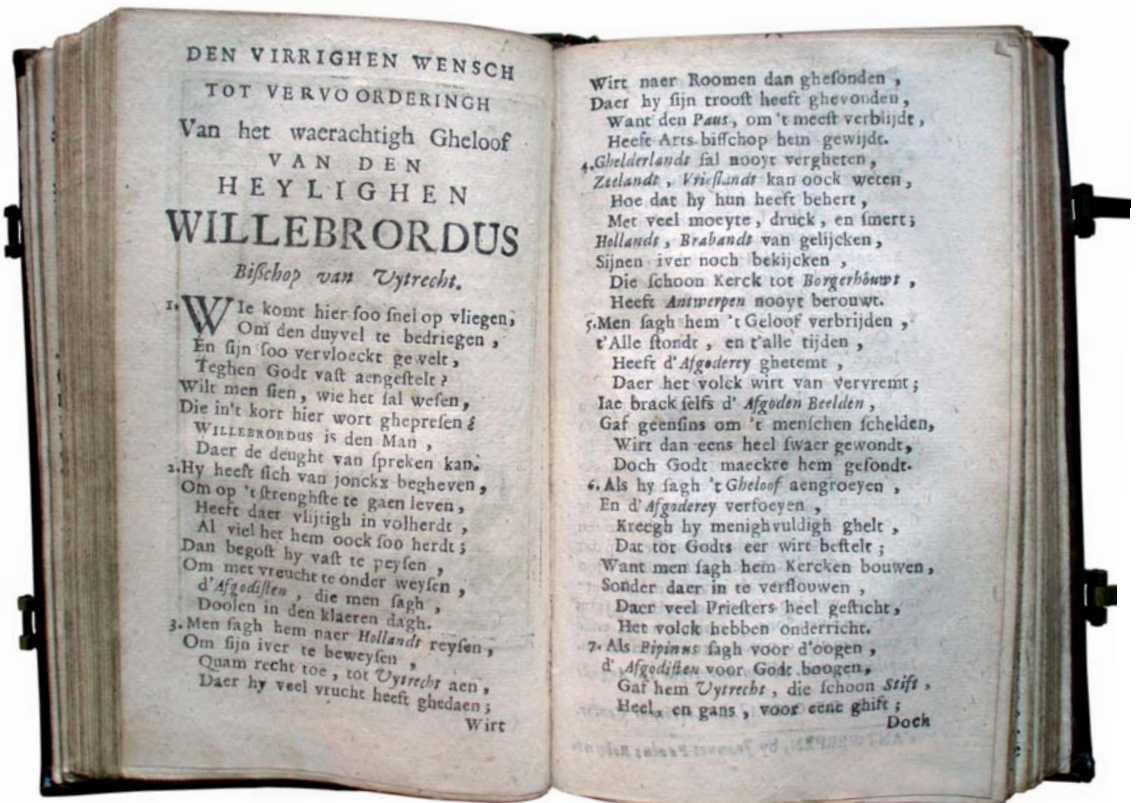 DEN VIRRIGHEN WENSCH
TOT VERVOORDERINGH
Van het waerachtigh Gheloof
VAN DEN
HEYLIGHEN
WILLEBRORDUS
Bißchop van Vytrecht.
1. WIe komt hier ſoo ſnel op vliegen,
Om den duyvel te bedriegen,
En ſijn ſoo vervloeckt gewelt,
Teghen Godt vaſt aengeſtelt?
Wilt men ſien, wie het ſal weſen,
Die in't kort hier wort ghepreſen?
WILLEBRORDUS is den Man,
Daer de deught van ſpreken kan.
2. Hy heeft ſich van jonckx begheven,
Om op 't ſtrenghſte te gaen leven,
Heeft daer vlijtigh in volherdt,
Al viel het hem oock ſoo herdt;
Dan begoſt hy vaſt te peyſen,
Om met vreucht te onder weyſen,
d'Afgodiſten, die men ſagh,
Doolen in den klaeren dagh.
3. Men ſagh hem naer Hollandt reyſen,
Om ſijn iver te beweyſen,
Quam recht toe, tot Vytrecht aen,
Daer hy veel vrucht heeft ghedaen;
Wirt
Wirt naer Roomen dan gheſonden,
Daer hy ſijn trooſt heeft ghevonden,
Want den Paus, om 't meeſt verblijdt,
Heeft Arts-biſſchop hem gewijdt.
4. Ghelderlandt ſal nooyt vergheten,
Zeelandt, Vrieſlandt kan oock weten,
Hoe dat hy hun heeft behert,
Met veel moeyte, druck, en ſmert;
Hollandt, Brabandt van gelijcken,
Sijnen iver noch bekijcken,
Die ſchoon Kerck tot Borgerhouwt,
Heeft Antwerpen nooyt berouwt.
5. Men ſagh hem 't Geloof verbrijden,
t'Alle ſtondt, en t'alle tijden,
Heeft d'Afgoderey ghetemt,
Daer het volck wirt van vervremt;
Iae brack ſelfs d' Afgoden Beelden,
Gaf geenſins om 't menſchen ſchelden,
Wirt dan eens heel ſwaer gewondt,
Doch Godt maeckte hem geſondt.
6. Als hy ſagh 't Gheloof aengroeyen,
En d'Afgoderey verfoeyen,
Kreegh hy menighvuldigh ghelt,
Dat tot Godts eer wirt beſtelt;
Want men ſagh hem Kercken bouwen,
Sonder daer in te verflouwen,
Daer veel Prieſters heel geſticht,
Het volck hebben onderricht.
7. Als Pipinus ſagh voor d'oogen,
d' Afgodiſten voor Godt boogen,
Gaf hem Vytrecht, die ſchoon Stift,
Heel, en gans, voor eene ghift;
Doch